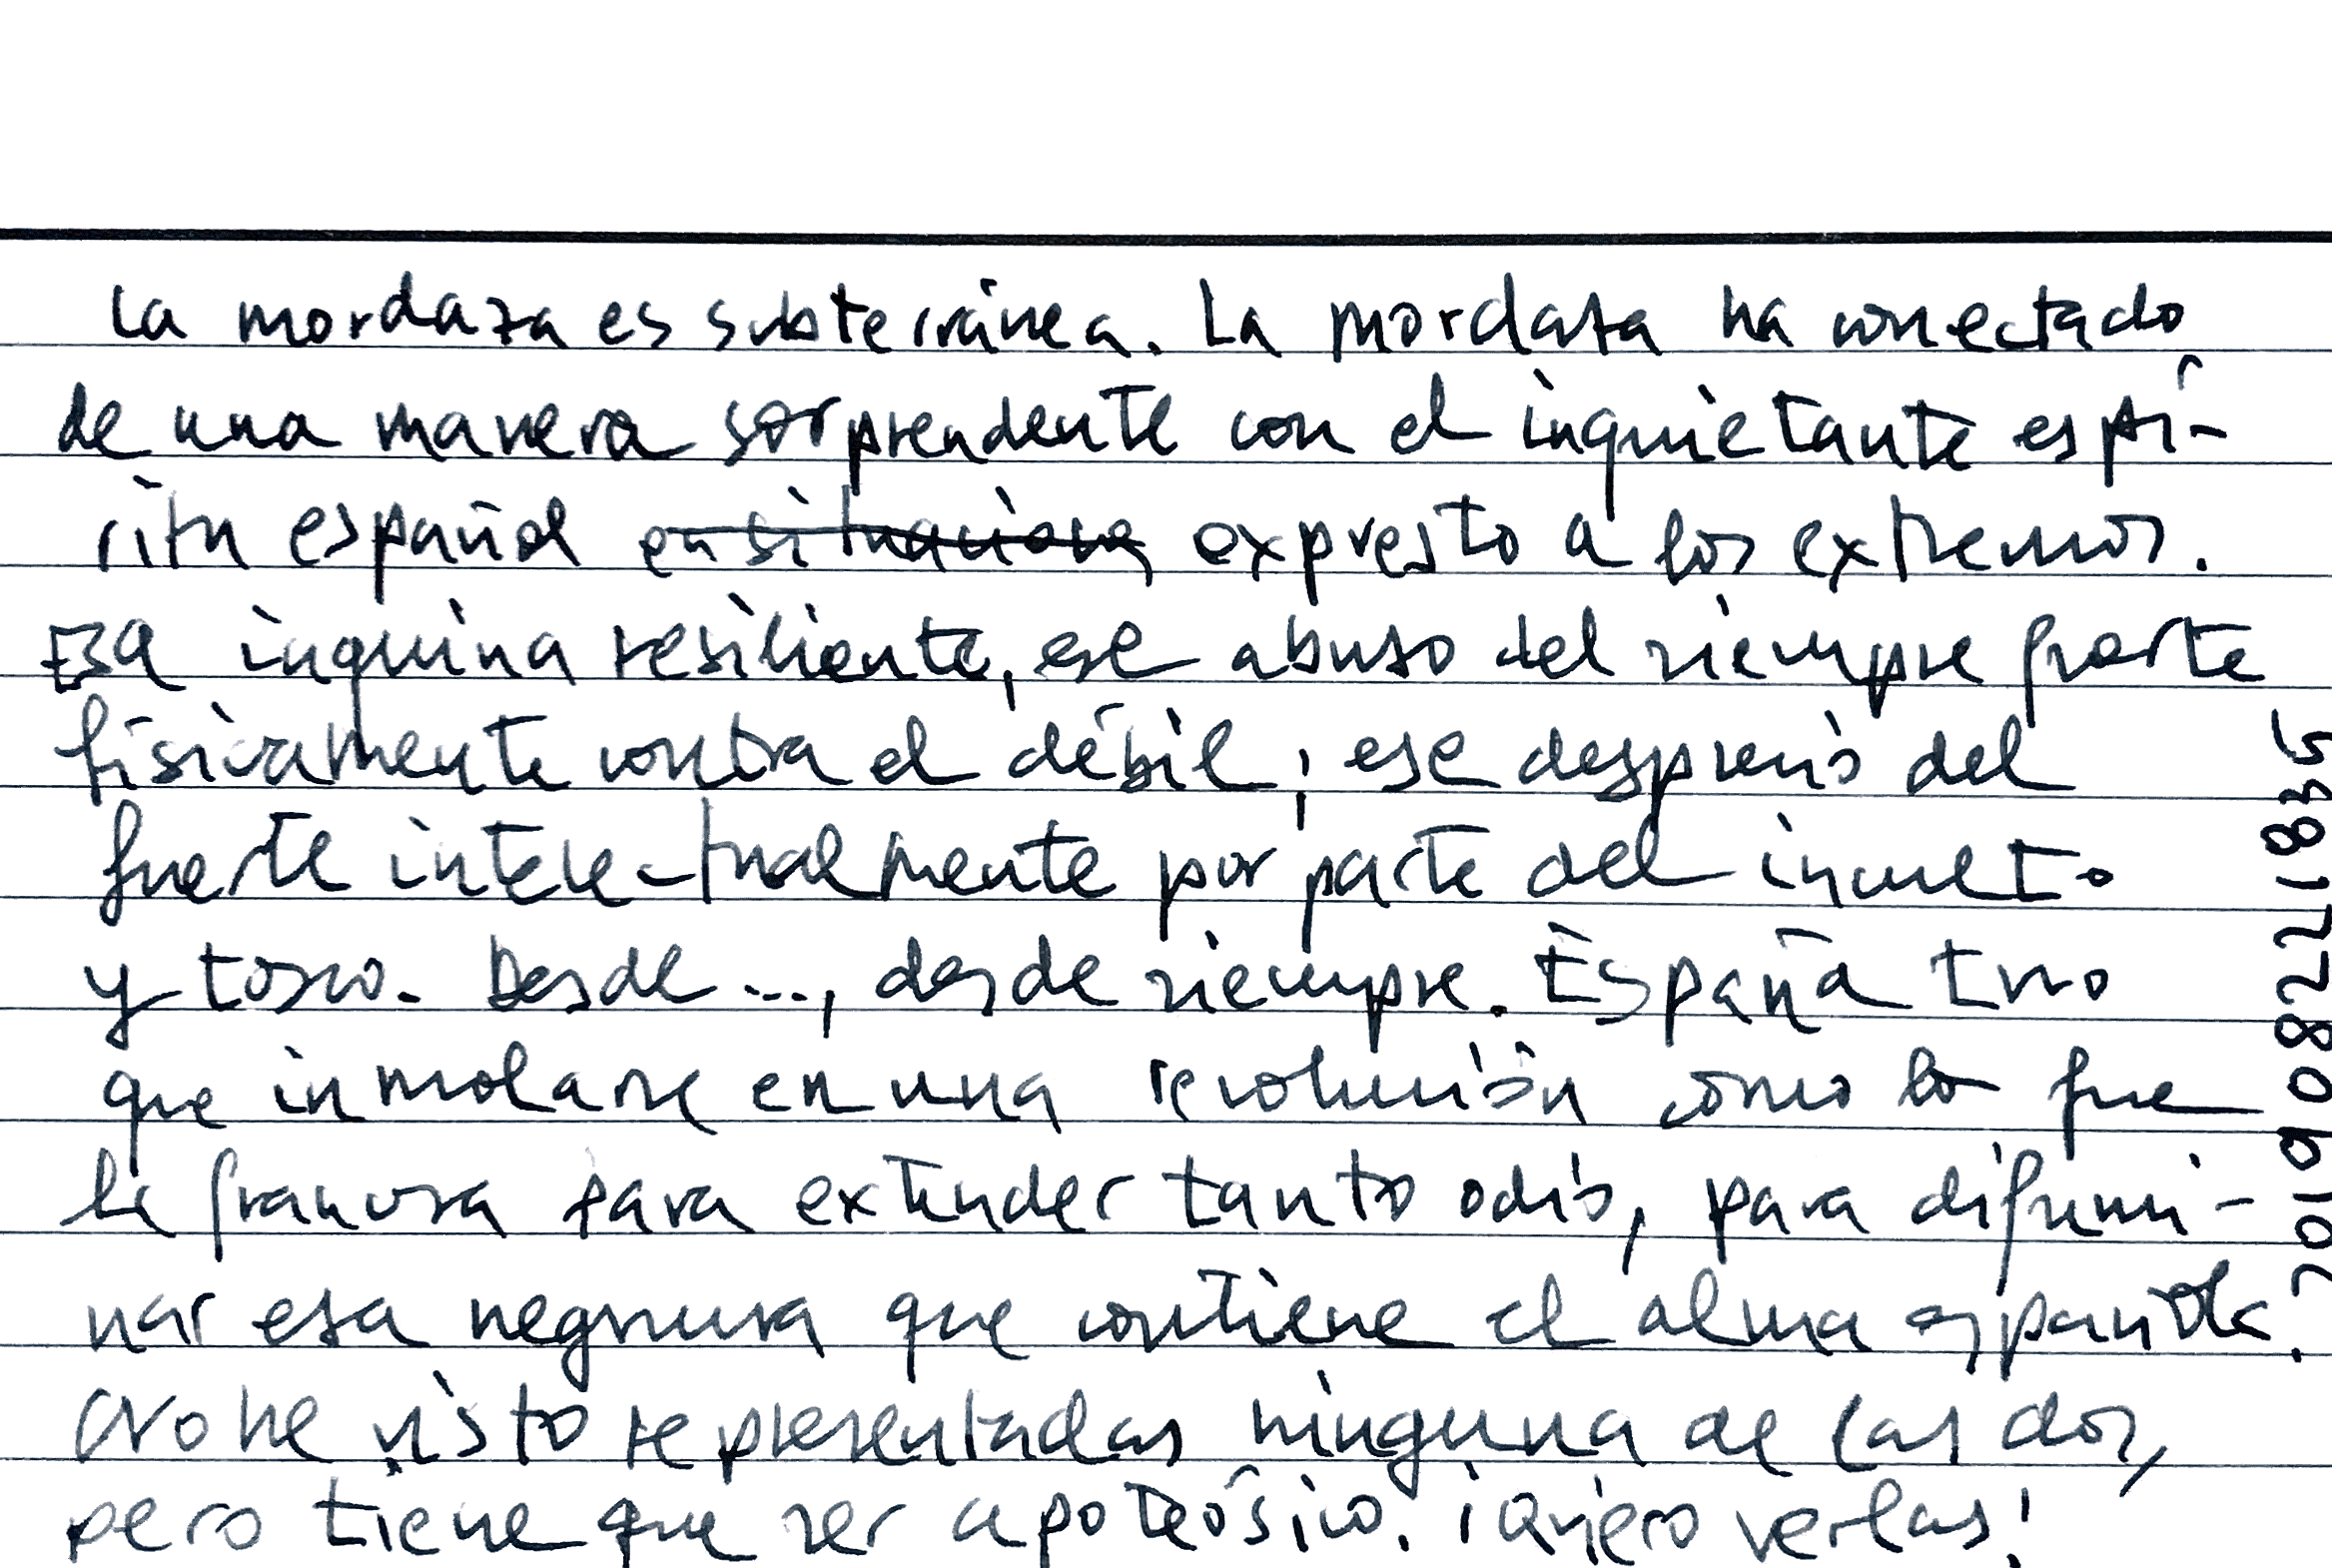 La mordaza es subterránea. La mordaza ha conectado
de una manera sorprendente con el inquietante espí-
ritu español en situaciones expresto a los extremos.
Esa inquina resiliente, ese abuso del siempre fuerte
físicamente contra el débil; ese desprecio del
fuerte intelectualmente por parte del inculto
y tosco. Desde ..., desde siempre. España tuvo
que inmolarse en una revolución como lo fue
la francesa para extender tanto odio, para difumi-
nar esa negrura que contiene el alma española.
No he visto representadas ninguna de las dos,
pero tiene que ser apoteósico. ¡Quiero verlas!